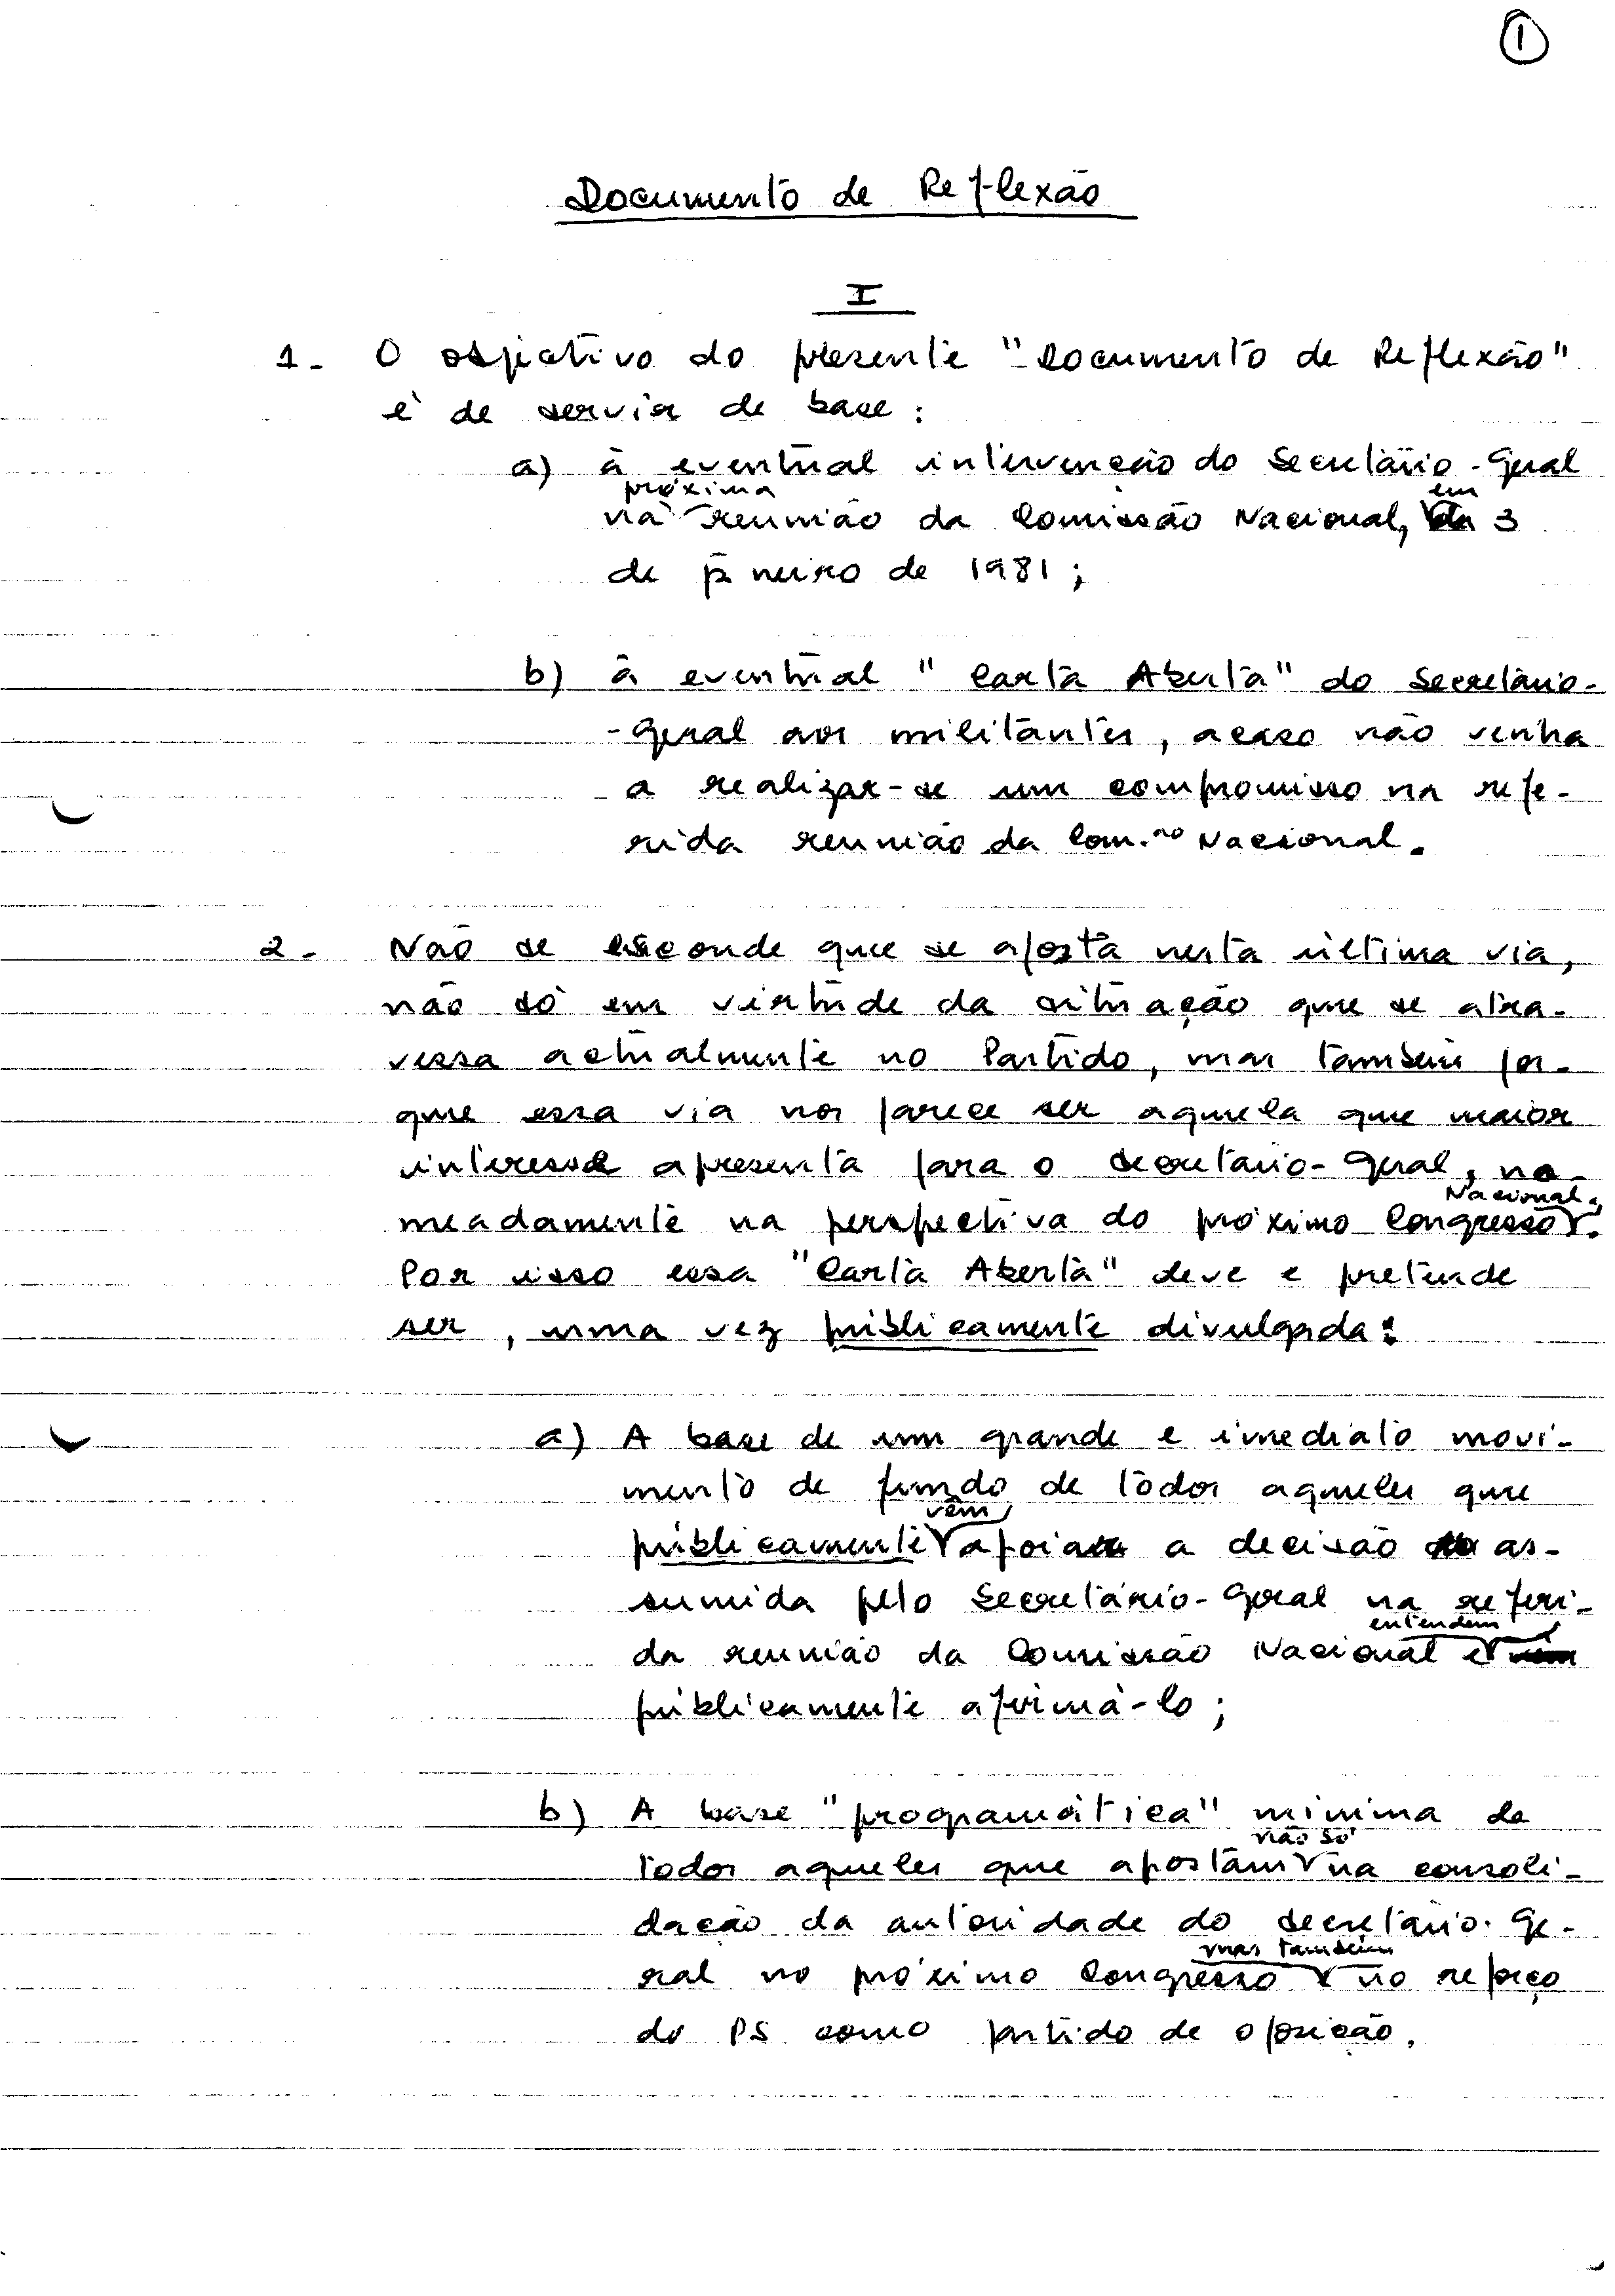 1
Documento de Reflexão
I
1 - O objectivo do presente "Documento de Reflexão"
é de servir de base:
a) à eventual intervenção do Secretário-Geral
na próxima reunião da Comissão Nacional, em 3
de janeiro de 1981;
b) à eventual "Carta Aberta" do Secretário-
-Geral aos militantes, acaso não venha
a realizar-se um compromisso na refe-
rida reunião da Com.ão Nacional.
2 - Não se esconde que se aposta nesta última via,
não só em virtude da situação que se atra-
vessa actualmente no Partido, mas também por-
que essa via nos parece ser aquela que maior
interesse apresenta para o Secretário-Geral, no-
meadamente na perspectiva do próximo Congresso Nacional.
Por isso essa "Carta Aberta" deve e pretende
ser, uma vez públicamente divulgada:
a) A base de um grande e imediato movi-
mento de fundo de todos aqueles que
públicamente vêm apoiar a decisão as-
sumida pelo Secretário-Geral na referi-
da reunião da Comissão Nacional e entendem
públicamente afirmá-lo;
b) A base "programática" mínima de
todos aqueles que apostam não só na consoli-
dação da autoridade do Secretário-Ge-
ral no próximo Congresso mas também no reforço
do PS como partido de oposição.